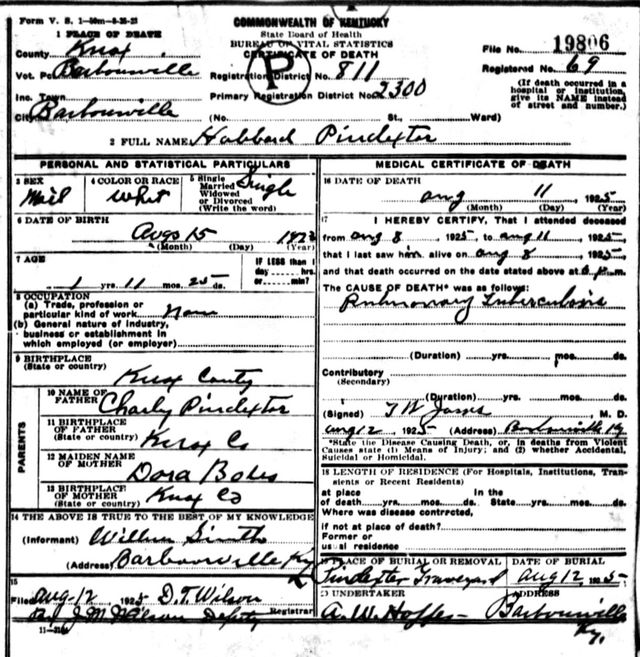 Form V. S. 1-50m-5-26-23
COMMONWEALTH OF KENTUCKY
State Board of Health
BUREAU OF VITAL STATISTICS
CERTIFICATE OF DEATH
1 PLACE OF DEATH
County Knox
Vot. Pct. Barbourville
Inc. Town
City Barbourville
File No. 19806
Registered No. 69
Registration District No. 811
Primary Registration District No. 2300
(If death occurred in a
hospital or institution,
give its NAME instead
of street and number.)
(No. St., Ward)
2 FULL NAME Hubbard Pindexter
PERSONAL AND STATISTICAL PARTICULARS
3 SEX
Mail
4 COLOR OR RACE
Whit
5 Single
Married
Widowed
or Divorced
(Write the word)
Single
6 DATE OF BIRTH
Augs 15 1923
(Month) (Day) (Year)
7 AGE
1 yrs. 11 mos. 25 ds.
IF LESS than 1
day hrs.
or min.?
8 OCCUPATION
(a) Trade, profession or
particular kind of work
(b) General nature of industry,
business or establishment in
which employed (or employer)
9 BIRTHPLACE
(State or country)
Knox Conty
PARENTS
10 NAME OF
FATHER Charly Pindexter
11 BIRTHPLACE
OF FATHER
(State or country) Knox Co
12 MAIDEN NAME
OF MOTHER
Dora Boles
13 BIRTHPLACE
OF MOTHER
(State or country) Knox Co
14 THE ABOVE IS TRUE TO THE BEST OF MY KNOWLEDGE
(Informant) Smith
(Address) Barbourville Ky
15
Filed Aug-12 1925 D. T. Wilson
J. M. Wilson Deputy Registrar
MEDICAL CERTIFICATE OF DEATH
16 DATE OF DEATH
Aug 11 1925
(Month) (Day) (Year)
17 I HEREBY CERTIFY, That I attended deceased
from Aug 8 1925, to Aug 11, 1925
that I last saw him alive on Aug 8, 1925
and that death occurred on the date stated above at p.m.
The CAUSE OF DEATH* was as follows:
Pulmonary Tuberculosis
(Duration) yrs. mos. ds.
Contributory
(Secondary)
(Duration) yrs. mos. ds.
(Signed) M. D.
Aug 12 1925 (Address) Barbourville Ky
*State the Disease Causing Death, or, in deaths from Violent
Causes state (1) Means of Injury; and (2) whether Accidental,
Suicidal or Homicidal.
18 LENGTH OF RESIDENCE (For Hospitals, Institutions, Tran-
sients or Recent Residents)
at place In the
of death yrs. mos. ds. State yrs. mos. ds.
Where was disease contracted,
if not at place of death?
Former or
usual residence
19 PLACE OF BURIAL OR REMOVAL
Pindexter Graveyard
DATE OF BURIAL
Aug 12, 1925
20 UNDERTAKER
A. W. Hoffer
ADDRESS
Barbourville
Ky.